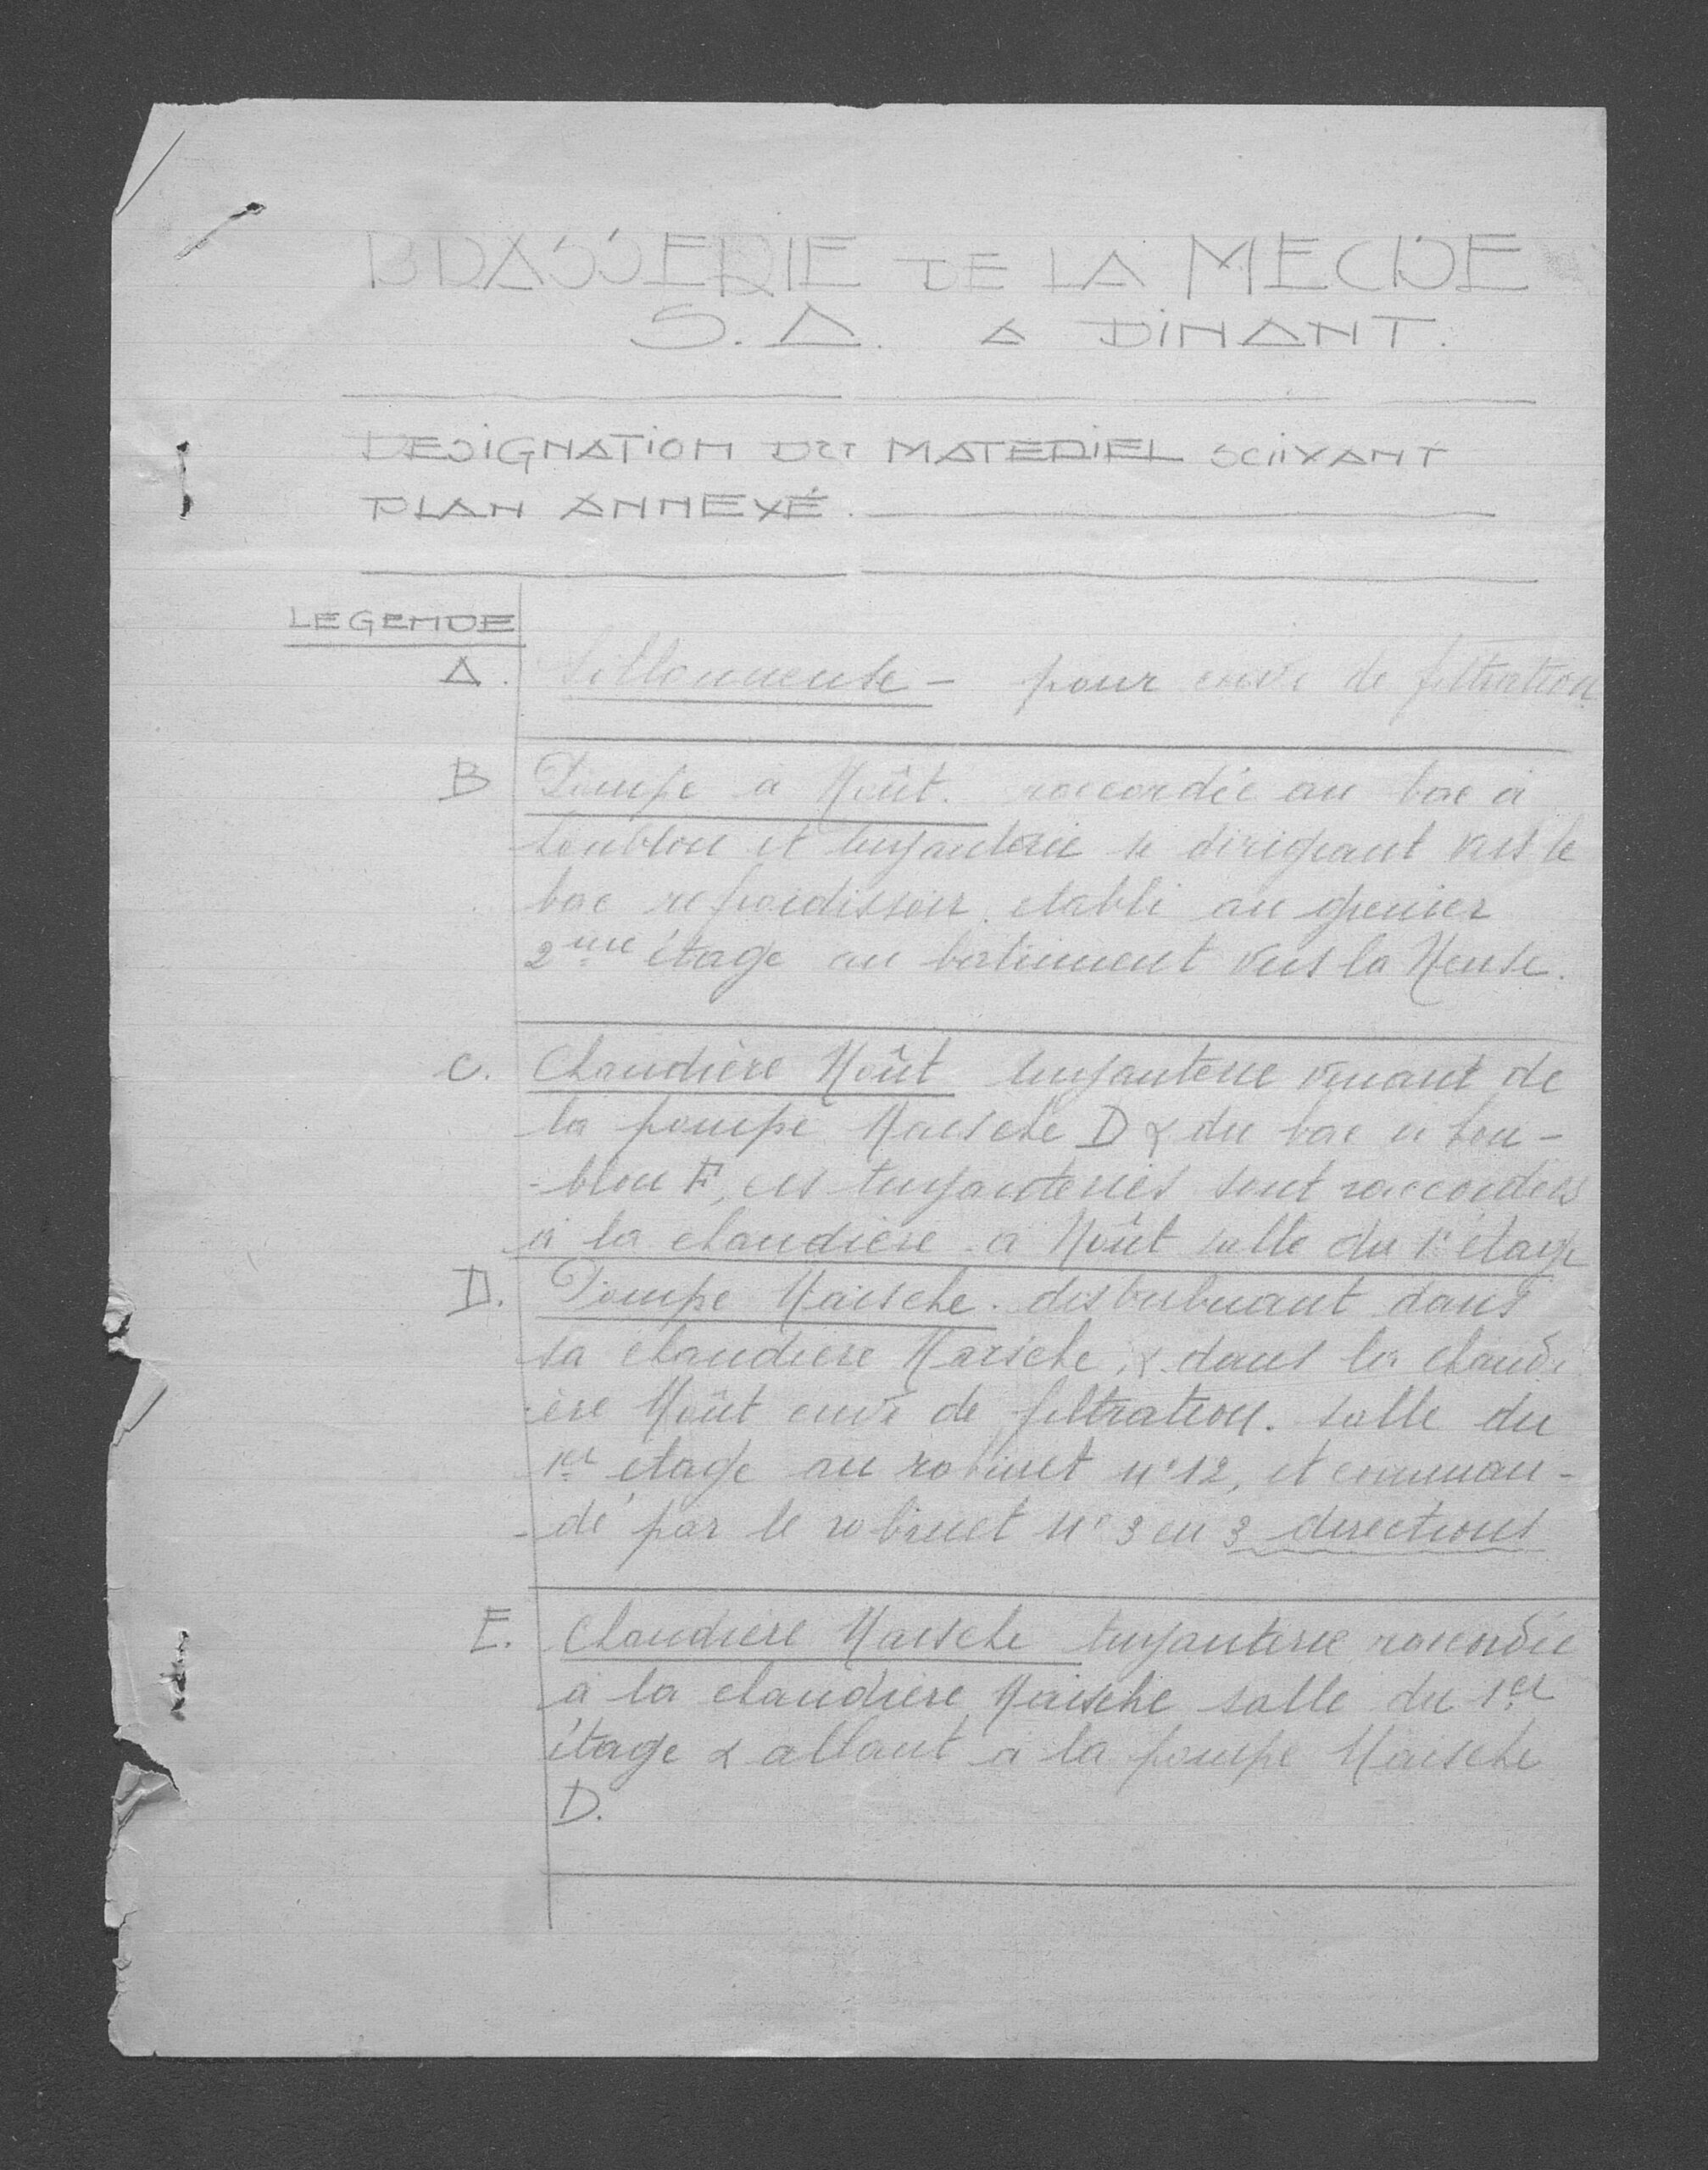 BRASSERIE DE LA MEUSE
S.A. A DINANT.
DESIGNATION DU MATERIEL SUIVANT
PLAN ANNEXÉ.
LEGENDE
A. Sillonneuse - pour cuve de filtration
B Pompe à Moût. raccordée au bac à
houblon et tuyauterie se dirigeant vers le
bac refroidissoir. etabli au grenier
2me étage au batiment vers la Meuse.
C. Chaudière Moût tuyauterie venant de
la pompe Maische D & du bac à hou-
-blon F, ces tuyauteries sont raccordées
à la chaudière à Moût salle du 1r étage
D. Pompe Maische. distribuant dans
sa chaudiere Maische, & dans la chaudi
-ère Moût cuve de filtration. salle du
1er etage au robinet n° 12, et comman-
-dé par le robinet n° 3 en 3 directions
E. Chaudière Maische tuyauterie raccordée
à la chaudière Maische salle du 1er
étage & allant à la pompe Maische
D.